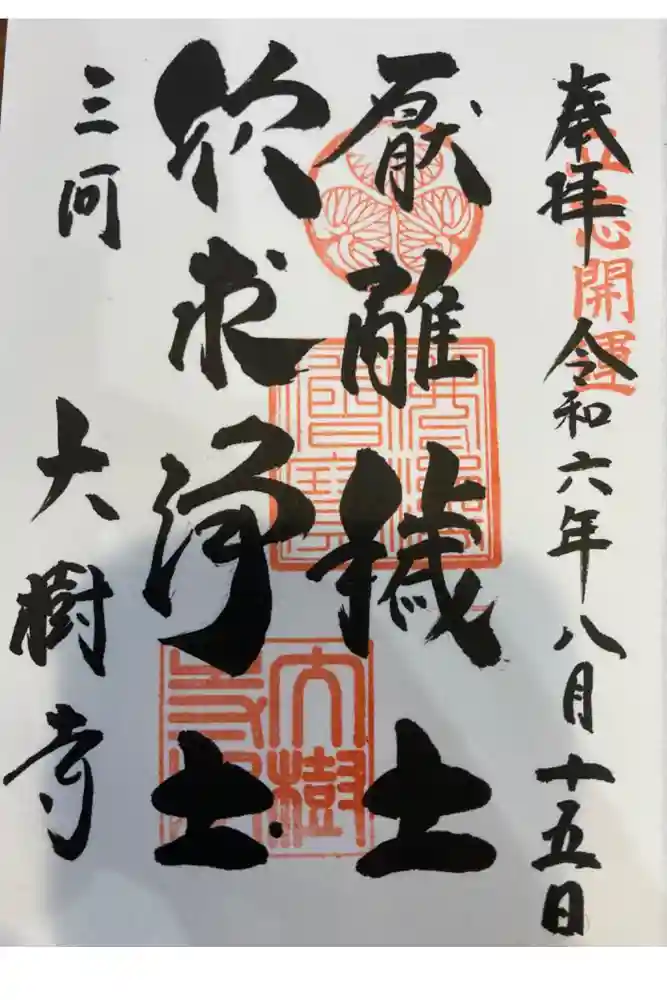 奉拝 令和六年八月十五日
開運
厭離穢土
欣求浄土
三河 大樹寺
大樹